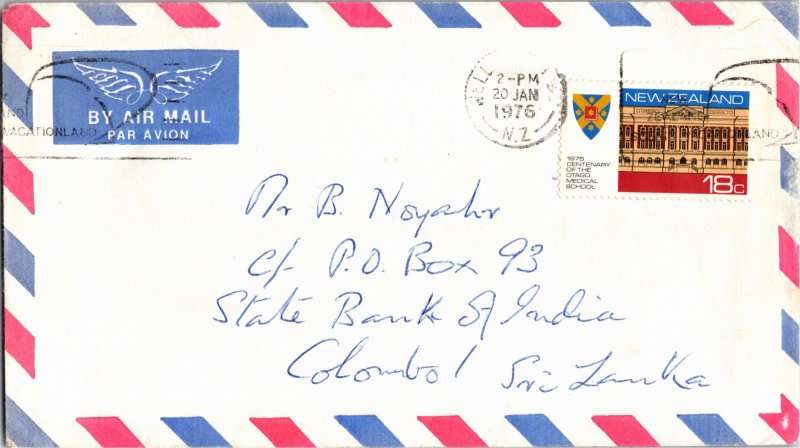 BY AIR MAIL
PAR AVION
VACATIONLAND
2-PM
20 JAN
1976
N.Z.
NEW ZEALAND
1975
CENTENARY
OF THE
OTAGO
MEDICAL
SCHOOL
18c
Mr B.
c/- P.O. Box 93
State Bank of India
Colombo 1 Sri Lanka